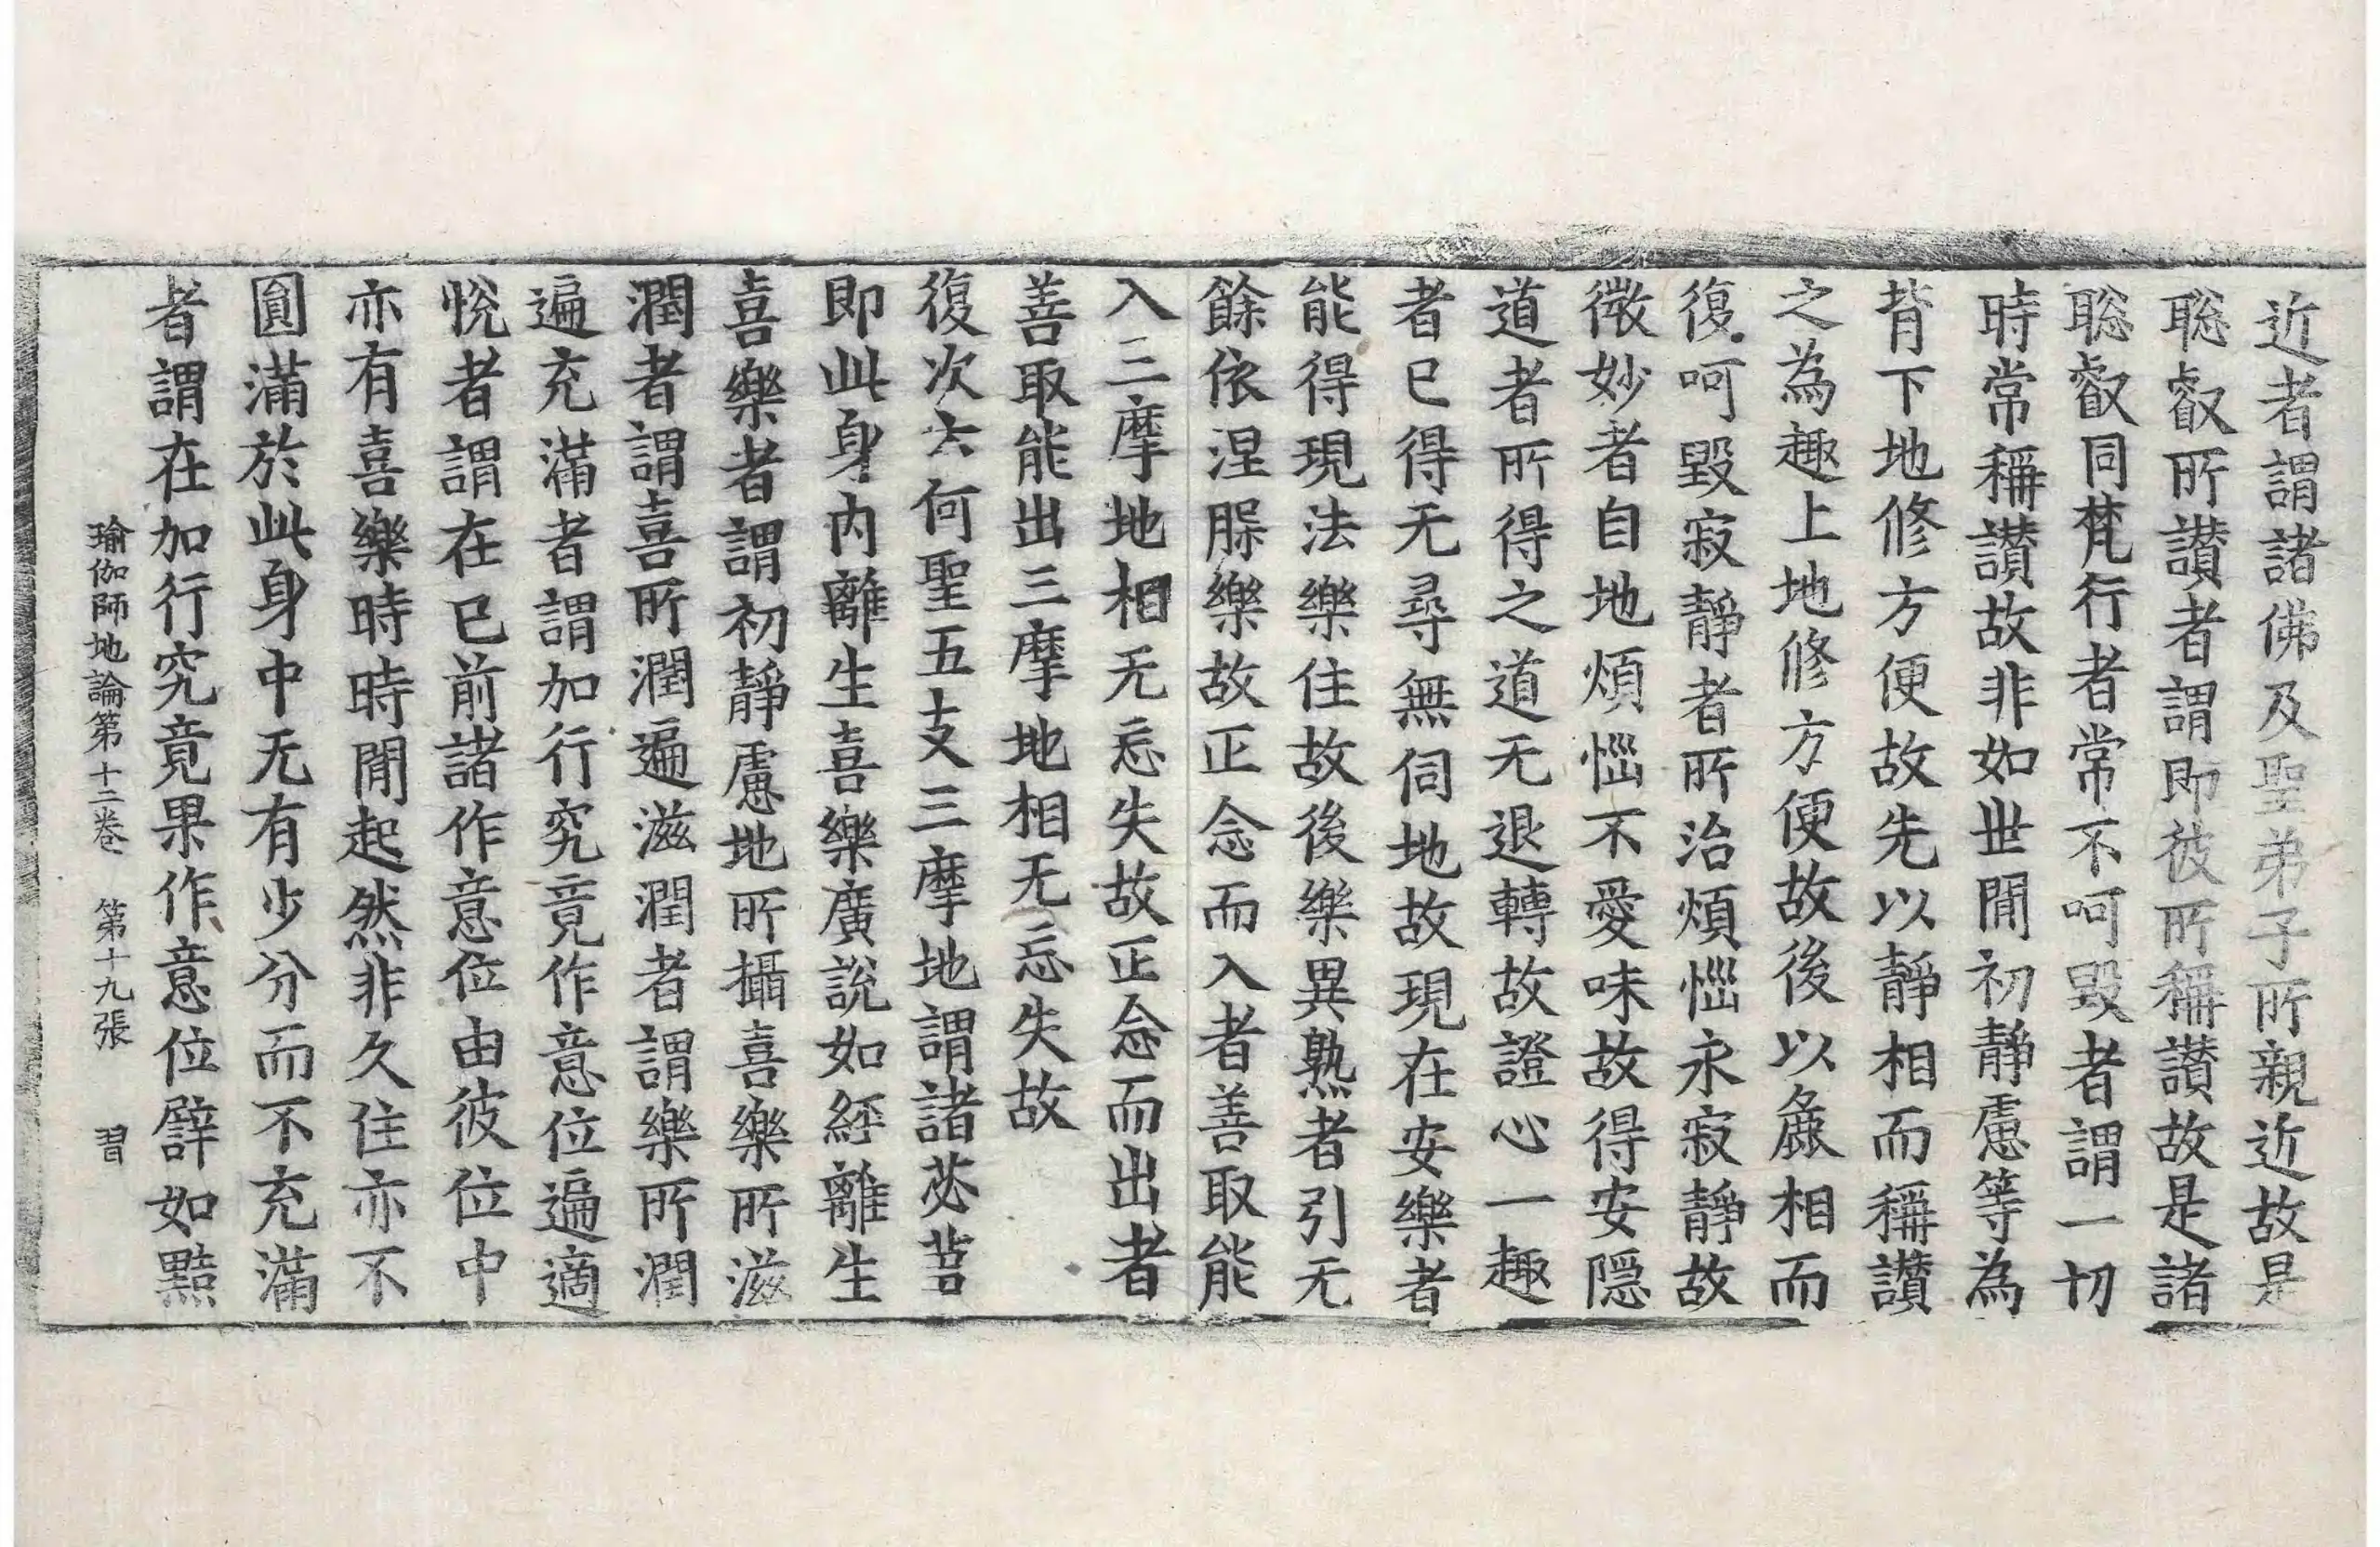 近者謂諸佛及聖弟子所親近故是
聡叡所讃者謂即彼所稱讃故是諸
聡叡同梵行者常不呵毀者謂一切
時常稱讃故非如世間初靜慮等為
背下地修方便故先以靜相而稱讃
之為趣上地修方便故後以麁相而
復呵毀寂靜者所治煩惱永寂靜故
微妙者自地煩惱不愛味故得安隱
道者所得之道无退轉故證心一趣
者已得无尋無伺地故現在安樂者
能得現法樂住故後樂異熟者引无
餘依涅脲樂故正念而入者善取能
入三摩地相无忘失故正念而出者
善取能出三摩地相无忘失故
復次云何聖五支三摩地謂諸苾芻
即此身内離生喜樂廣說如經離生
喜樂者謂初靜慮地所攝喜樂所滋
潤者謂喜所潤遍滋潤者謂樂所潤
遍充滿者謂加行究竟作意位遍適
悅者謂在已前諸作意位由彼位中
亦有喜樂時時間起然非久住亦不
圓滿於此身中无有少分而不充滿
者謂在加行究竟果作意位譬如黠
瑜伽師地論第十二卷 第十九張 習